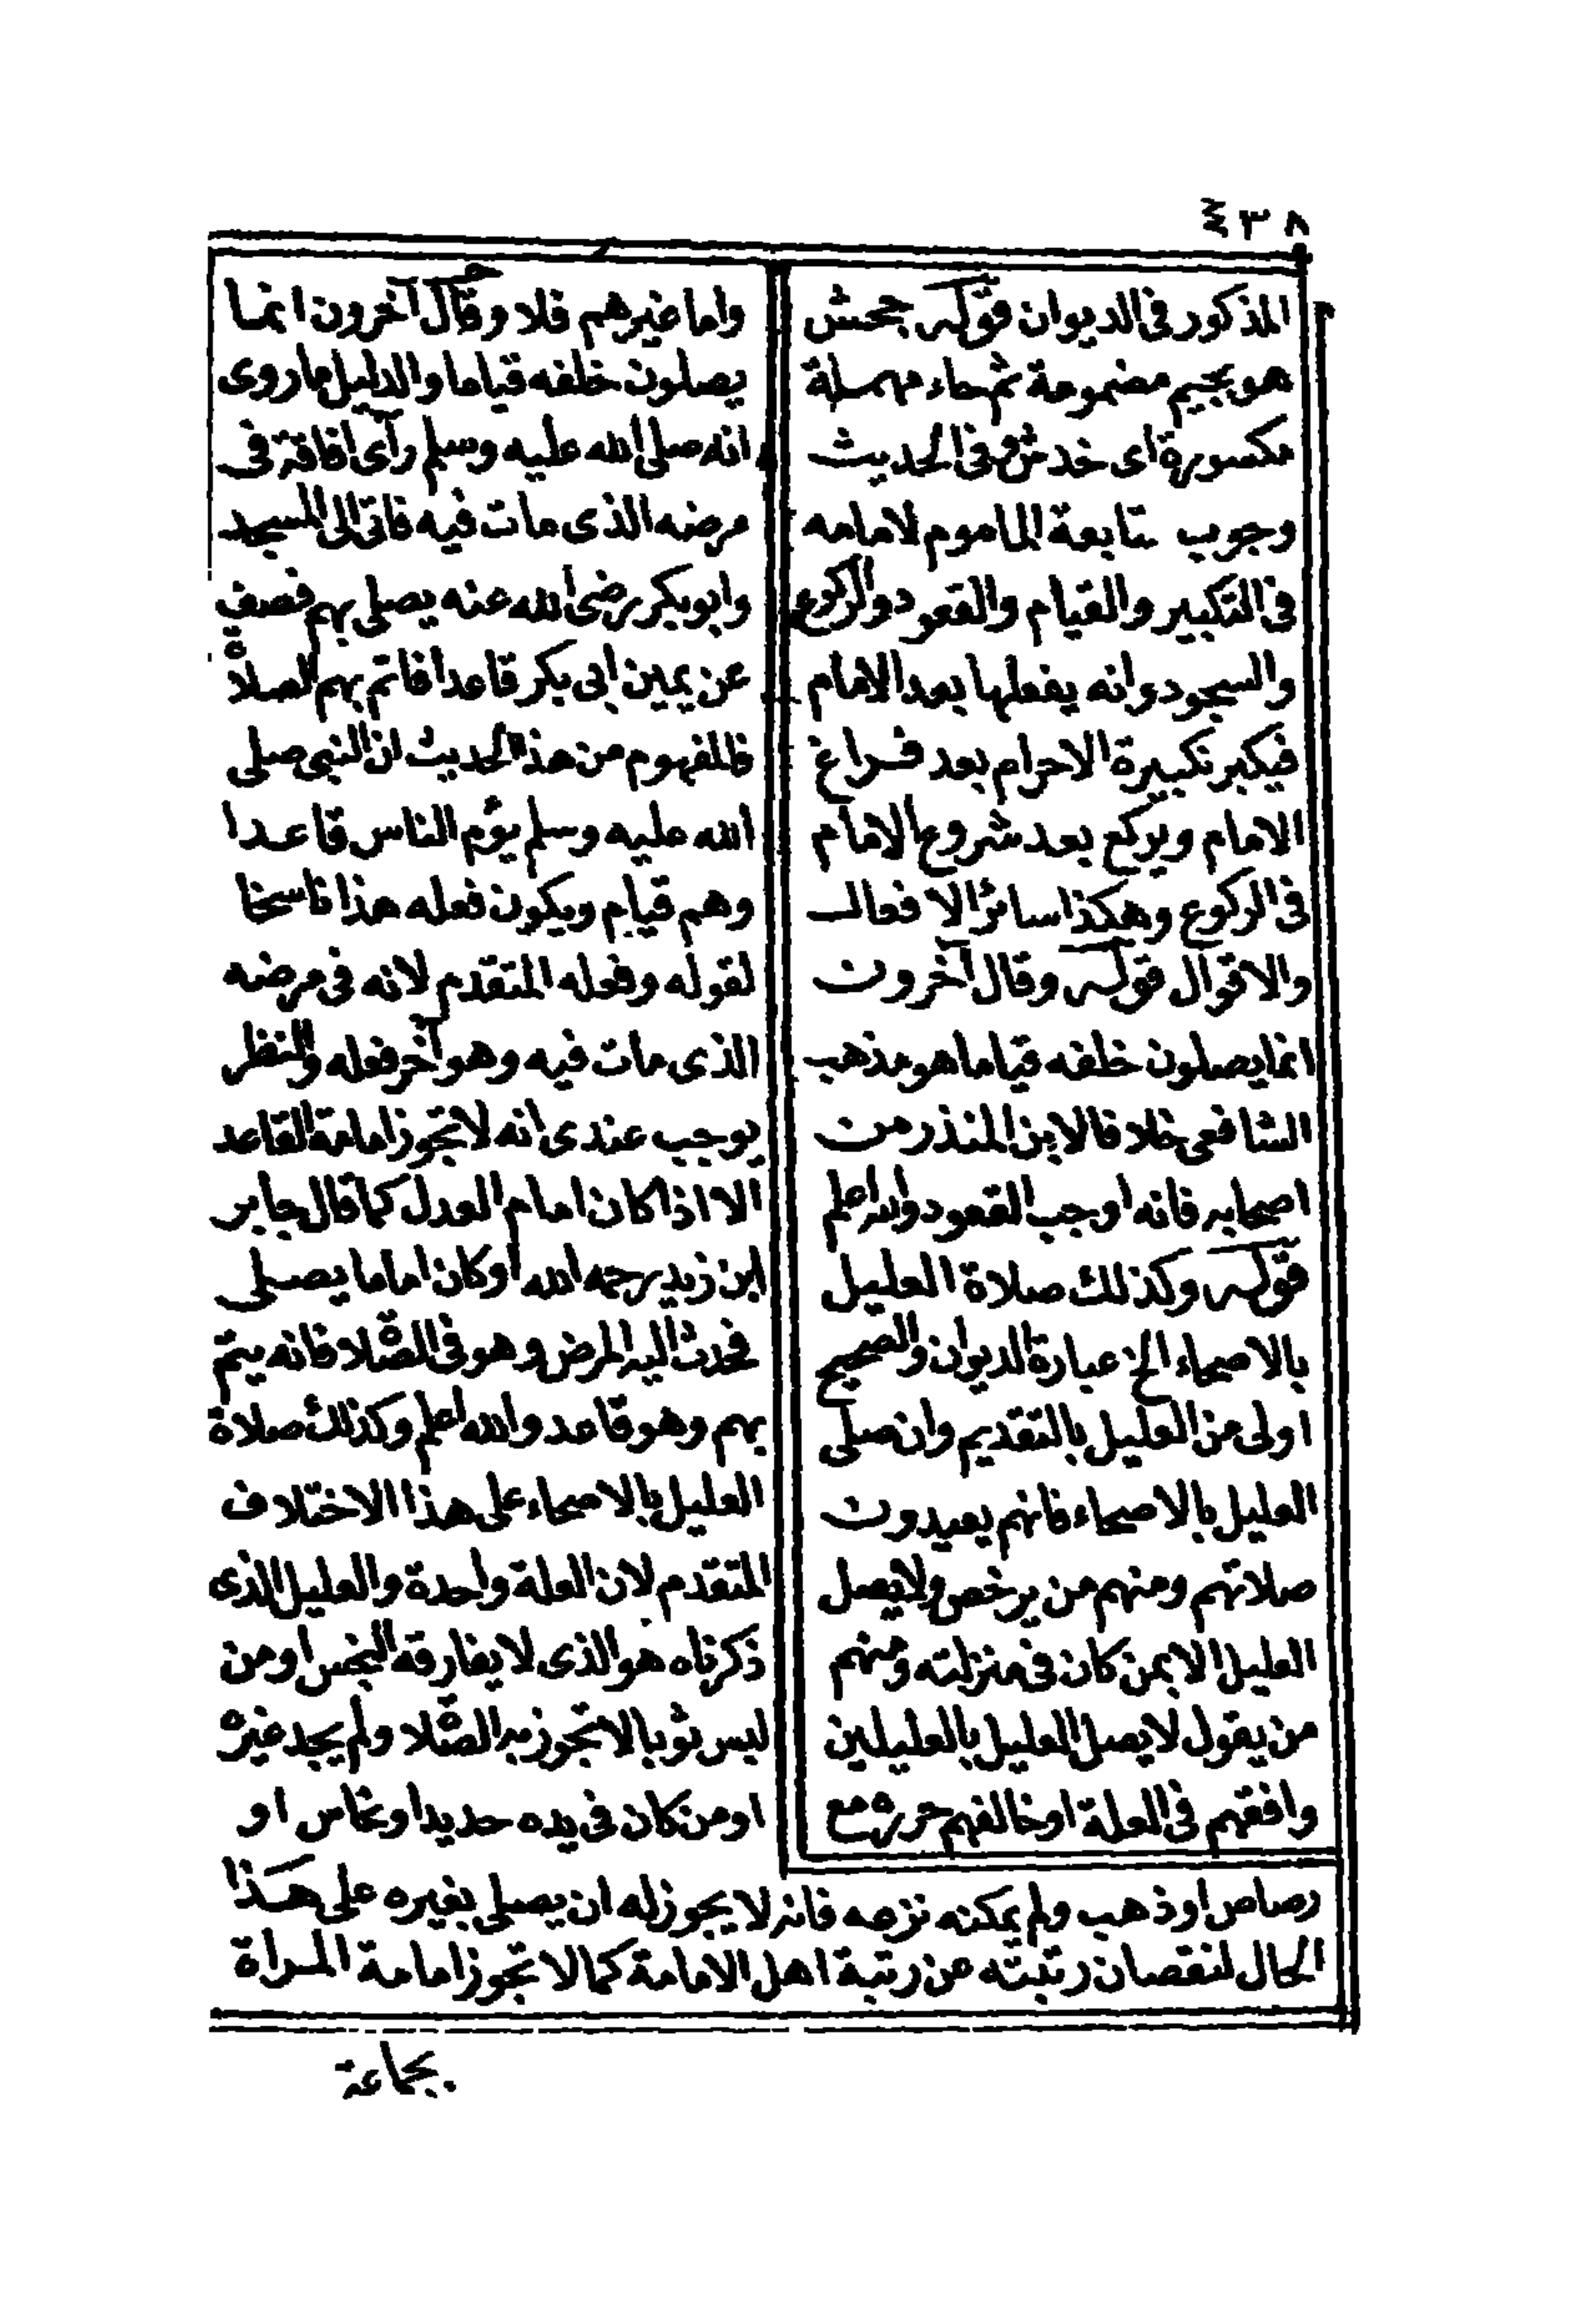 ٤٣٨
المذكور فى الديوان قوله جحش
هو بجيم مضمومة ثم حاء مهملة
مكسورة اى خدش وفى الحديث
وجوب متابعة الماموم لامامه
فى التكبير والقيام والقعود والركوع
والسجود وانه يفعلها بعد الامام
فيكبر تكبيرة الاحرام بعد فراغ
الامام ويركع بعد شروع الامام
فى الركوع وهكذا سائر الافعال
والاقوال قوله وقال آخرون
انما يصلون خلفه قياما هو مذهب
الشافعى خلافا لابن المنذر من
اصحابه فانه اوجب القعود والله اعلم
قوله وكذلك صلاة العليل
بالاصحاء الخ عبارة الديوان والصحيح
اولى من العليل بالتقديم وان صلى
العليل بالاصحاء فانهم يعيدون
صلاتهم ومنهم من يرخص ولا يصل
العليل الا بمن كان فى منزلته ومنهم
من يقول لا يصل العليل بالعليلين
وافقهم فى العلة او خالفهم حرره مع
واما غيرهم فلا وقال آخرون انما
يصلون خلفه قياما والدليل ما روى
انه صلى الله عليه وسلم رآى افاقة فى
مرضه الذى مات فيه فاتى الى المسجد
وابو بكر رضى الله عنه يصلى بهم فصف
عن يمين ابى بكر قاعدا فاتم بهم الصلاة
فالمفهوم من هذا الحديث ان النبى صلى
الله عليه وسلم يؤم الناس قاعدا
وهم قيام ويكون فعله هذا ناسخا
لقوله وفعله المتقدم لانه فى مرضه
الذى مات فيه وهو آخر فعله والنظر
يوجب عندى انه لا تجوز امامة القاعد
الا اذا كان امام العدل كما قال جابر
ابن زيد رحمه الله او كان اماما يصلى
فحدث اليه المرض وهو فى الصّلاة فانه يتم
بهم وهو قاعد والله اعلم وكذلك صلاة
العليل بالاصحاء على هذا الاختلاف
المتقدم لان العلة واحدة والعليل الذى
ذكرناه هو الذى لا يفارقه النجس او من
لبس ثوبا لا تجوز به الصّلاة ولم يجد غيره
او من كان فى يده حديد او نحاس او
رصاص او ذهب ولم يمكنه نزعه فانه لا يجوز له ان يصلى بغيره على هذا
الحال لنقصان رتبته عن رتبة اهل الامامة كما لا تجوز امامة المراة
بجماعة